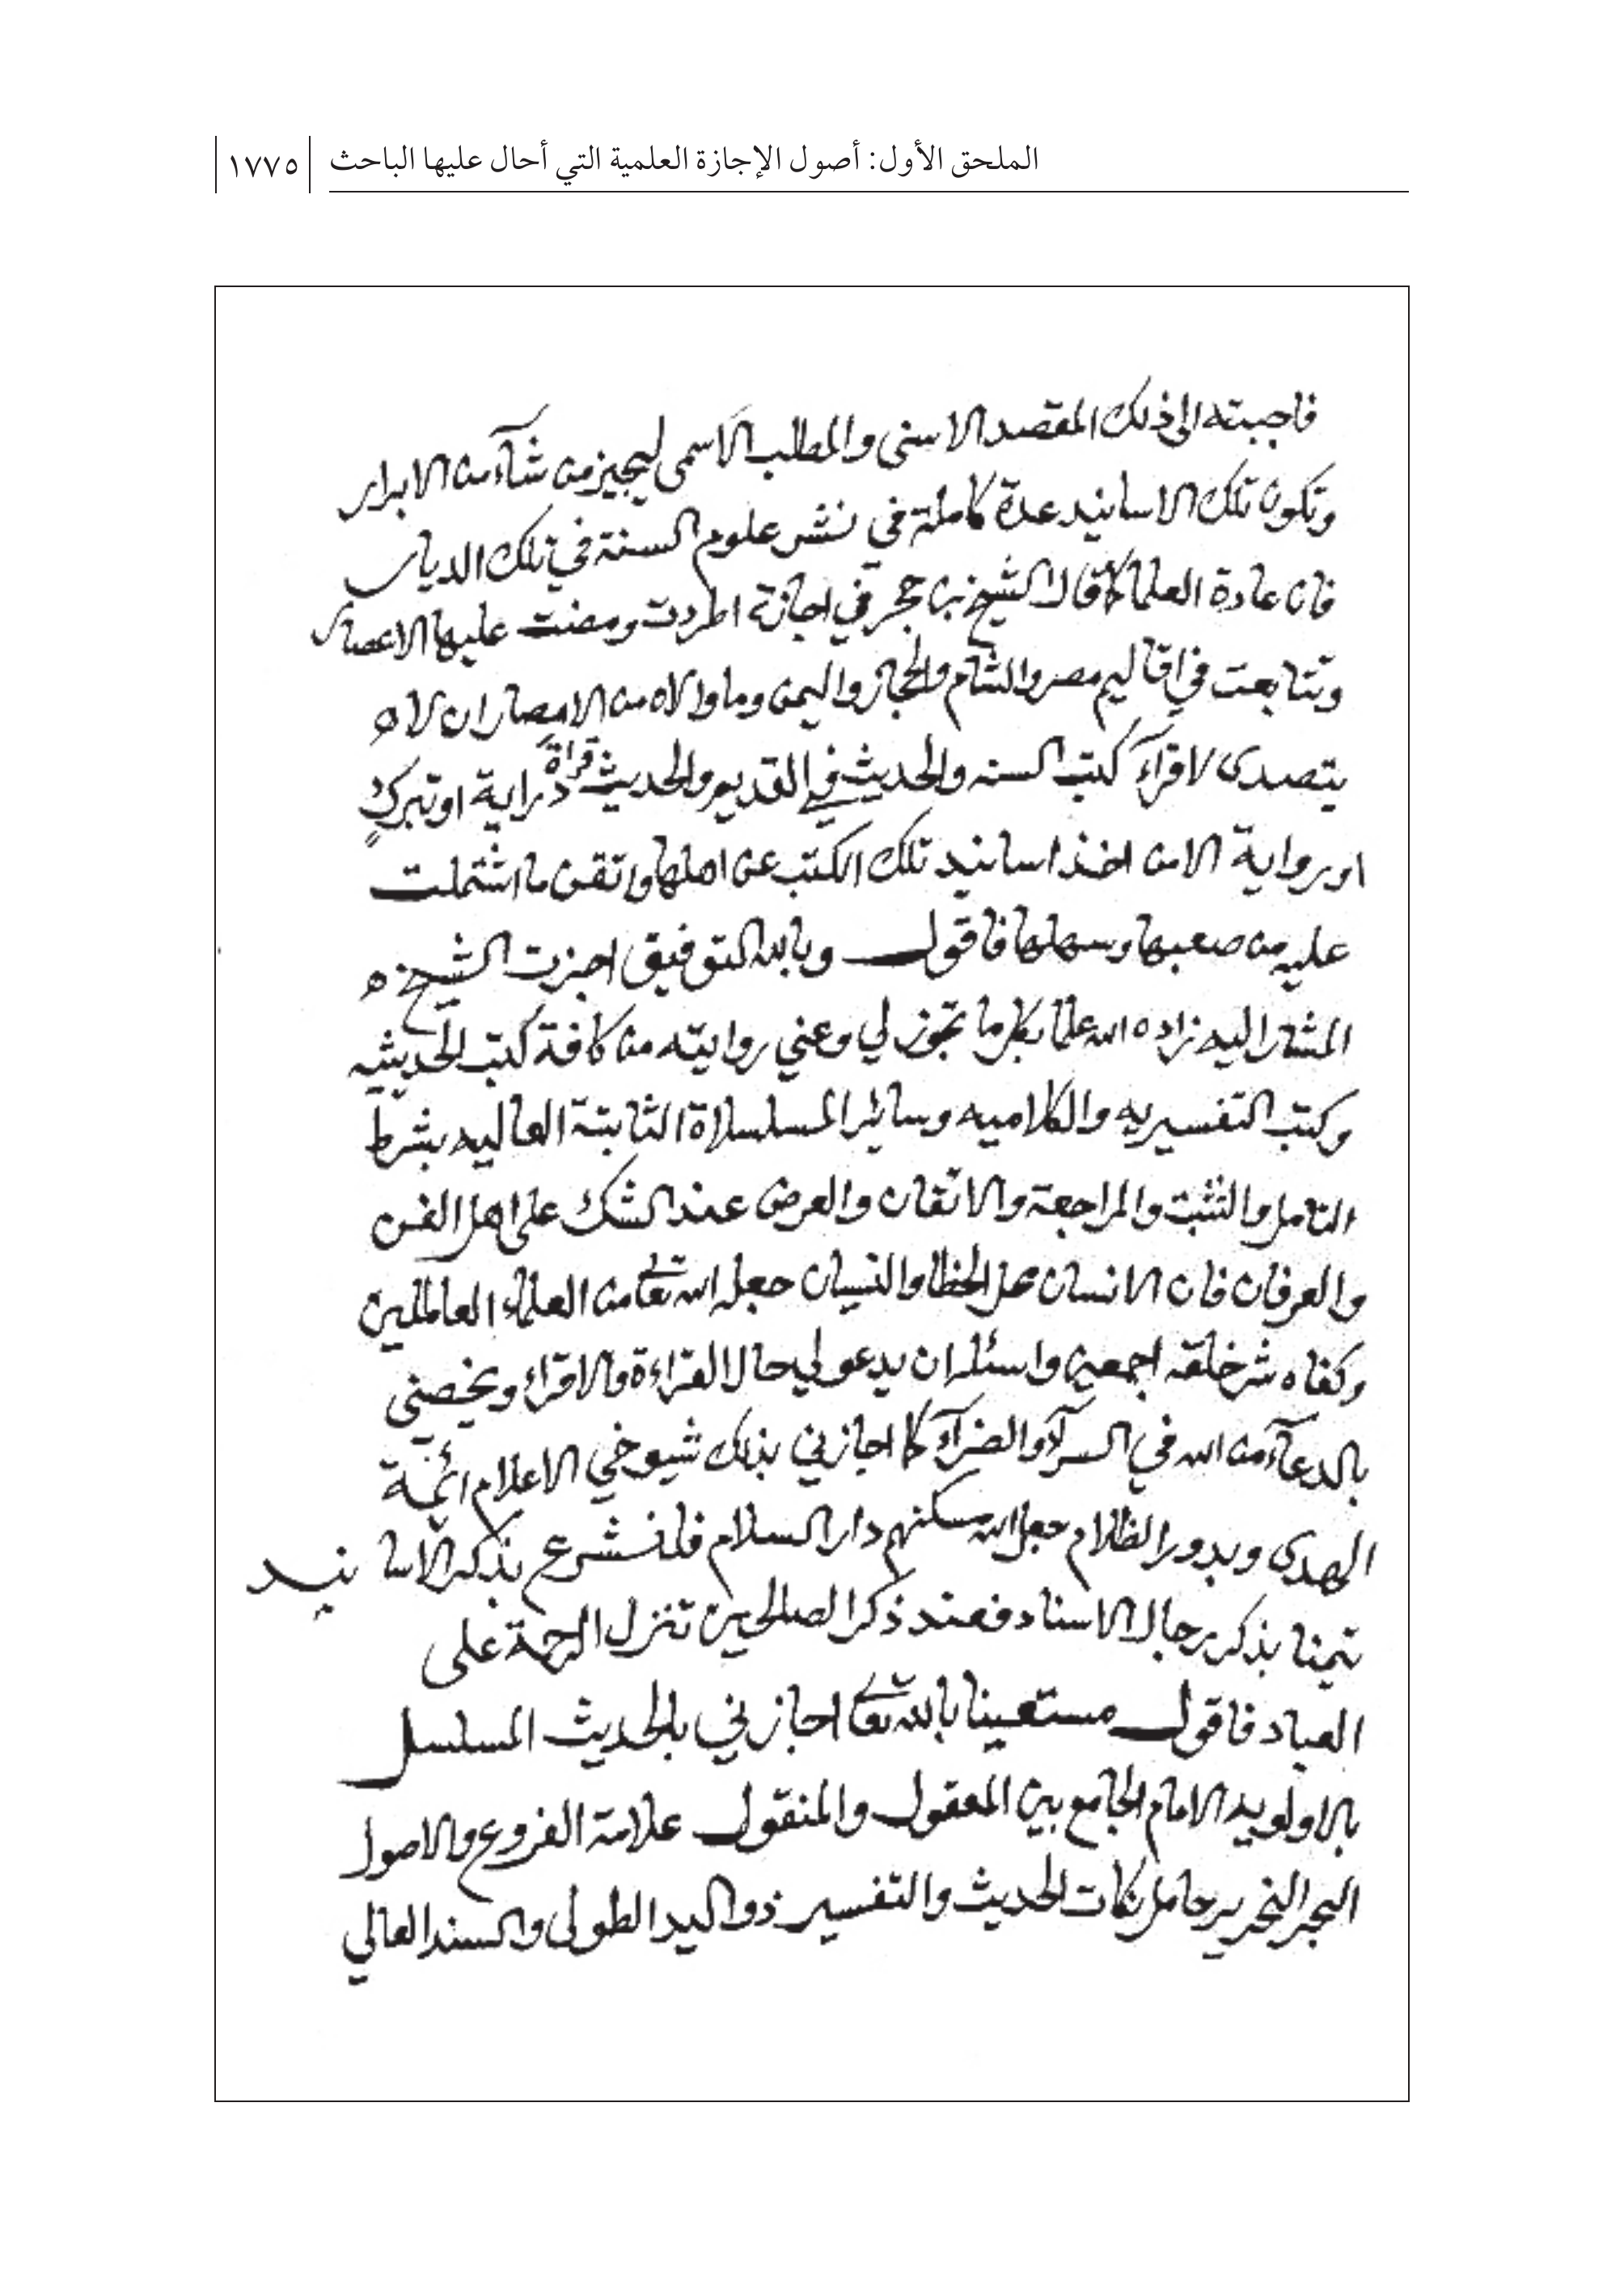 الملحق الأول: أصول الإجازة العلمية التي أحال عليها الباحث ١٧٧٥
فاجبته الى ذلك المقصد الاسنى والمطلب الآسمى ليجيز من شآء من الابرار
وتكون تلك الاسانيد عدة كاملة في نشر علوم السنة في تلك الديار
فان عادة العلما كما قال الشيخ بن حجر في اجازة اطردت ومضت عليها الاعصار
وتتابعت في اقاليم مصر والشام والحجاز واليمن وما والاه من الامصار ان لا
يتصدى لاقرآء كتب السنه والحديث في القديم والحديث قراة دراية او تبرك
او رواية الا من اخذ اسانيد تلك الكتب عن اهلها واتقن ما اشتملت
عليه من صعبها وسهلها فاقول وبالله التوفيق اجزت الشيخ
المشار اليه زاده الله علما بكل ما تجوز لي وعني روايته من كافة كتب الحديثيه
وكتب التفسيريه والكلاميه وسائر المسلسلاة الثابتة العاليه بشرط
التامل والتثبت والمراجعة والاتقان والعرض عند الشك على اهل الفن
والعرفان فان الانسان محل الخطا والنسيان جعله الله تعالى من العلماء العاملين
وكفاه شر خلقه اجمعين واسئله ان يدعو لي حال القراءة والاقراء ويخصني
بالدعآء من الله في السرآء والضرآء كما اجازني بذلك شيوخي الاعلام ائمة
الهدى وبدور الظلام جعل الله مسكنهم دار السلام فلنشرع بذكر الاسانيد
تيمنا بذكر رجال الاسناد فعند ذكر الصالحين تنزل الرحمة على
العباد فاقول مستعينا بالله تعالى اجازني بالحديث المسلسل
بالاولويه الامام الجامع بين المعقول والمنقول علامة الفروع والاصول
البحر النحرير حامل نكات الحديث والتفسير ذو اليد الطولى والسند العالي